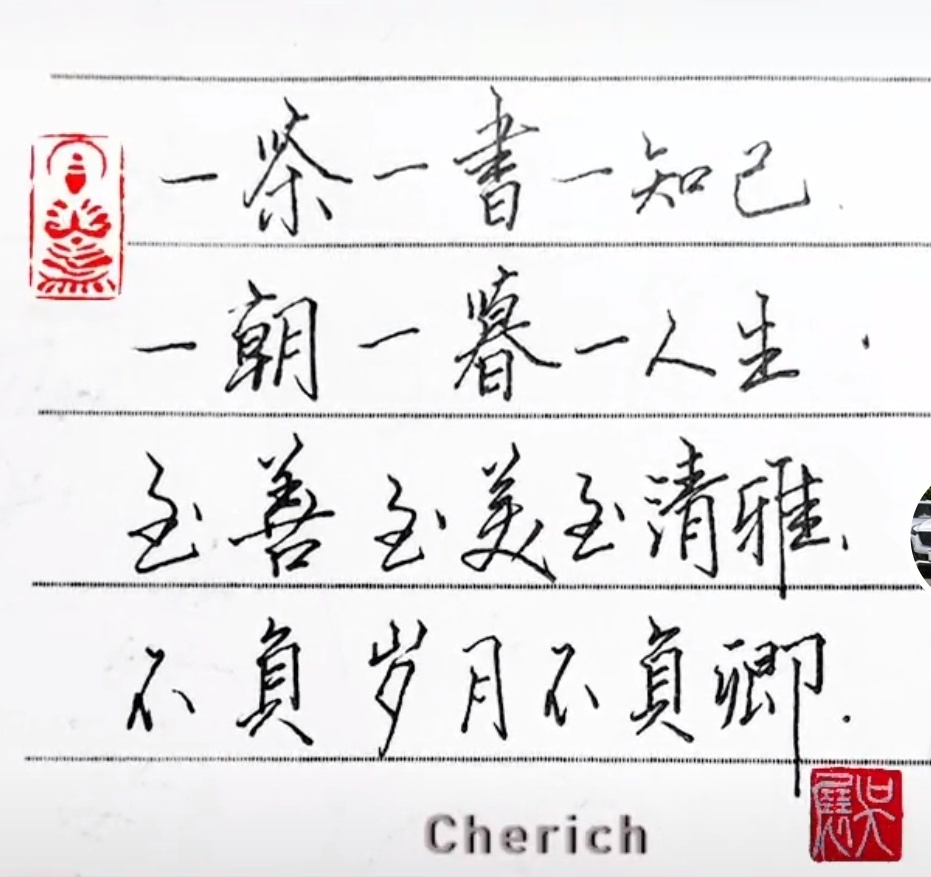 一茶一書一知己.
一朝一暮一人生.
至善至美至清雅.
不負岁月不負卿.
Cherich